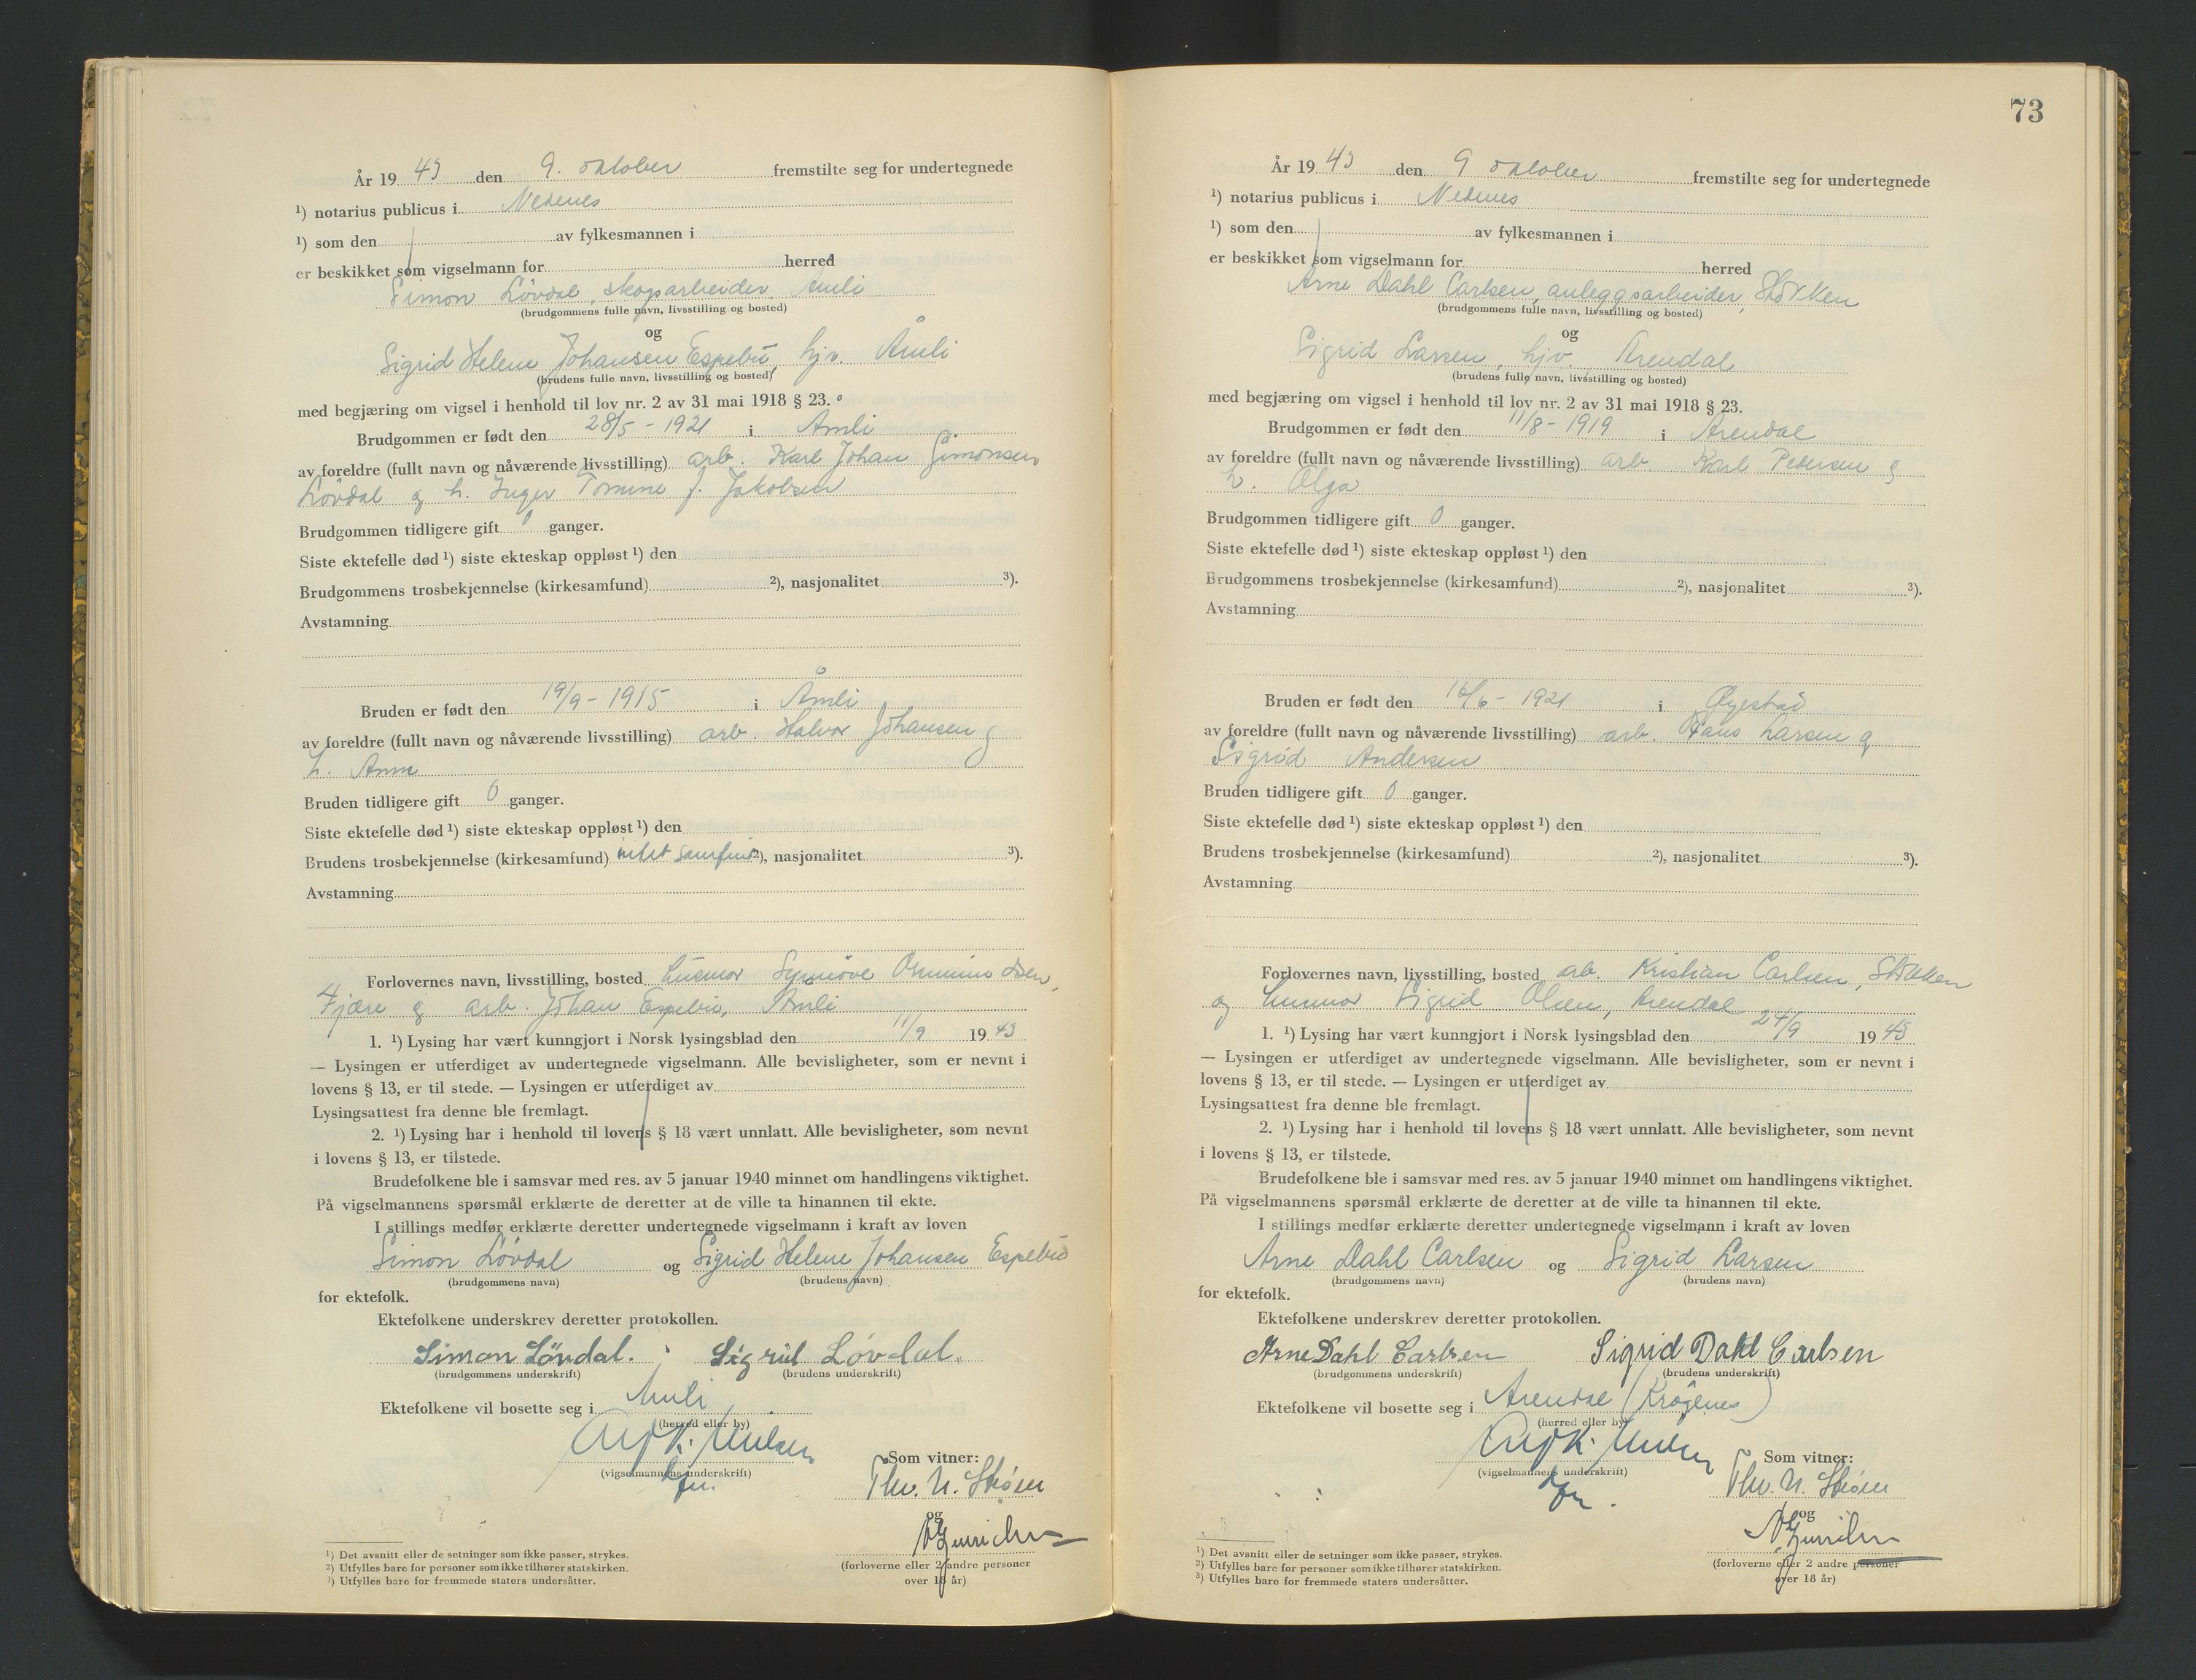 År 1943 den 9. oktober fremstilte seg for undertegnede
¹) notarius publicus i Nedenes
¹) som den av fylkesmannen i
er beskikket som vigselmann for herred
Simon Lövdal, skogsarbeider Åmli
(brudgommens fulle navn, livsstilling og bosted)
og
Sigrid Helene Johansen Espebu, hjv. Åmli
(brudens fulle navn, livsstilling og bosted)
med begjæring om vigsel i henhold til lov nr. 2 av 31 mai 1918 § 23.
Brudgommen er født den 28/5 - 1921 i Åmli
av foreldre (fullt navn og nåværende livsstilling) arb. Karl Johan Simonsen
Lövdal og h. Inger Tomine f. Jakobsen
Brudgommen tidligere gift 0 ganger.
Siste ektefelle død ¹) siste ekteskap oppløst ¹) den
Brudgommens trosbekjennelse (kirkesamfund) ²), nasjonalitet ³).
Avstamning
Bruden er født den 19/9 - 1915 i Åmli
av foreldre (fullt navn og nåværende livsstilling) arb. Halvor Johansen og
h. Anna
Bruden tidligere gift 0 ganger.
Siste ektefelle død ¹) siste ekteskap oppløst ¹) den
Brudens trosbekjennelse (kirkesamfund) intet samfund ²), nasjonalitet ³).
Avstamning
Forlovernes navn, livsstilling, bosted husmor Synnöve Ommundsen,
Fjære og arb. Johan Espebu, Åmli
1. ¹) Lysing har vært kunngjort i Norsk lysingsblad den 11/9 1943
— Lysingen er utferdiget av undertegnede vigselmann. Alle bevisligheter, som er nevnt i
lovens § 13, er til stede. — Lysingen er utferdiget av
Lysingsattest fra denne ble fremlagt.
2. ¹) Lysing har i henhold til lovens § 18 vært unnlatt. Alle bevisligheter, som nevnt
i lovens § 13, er tilstede.
Brudefolkene ble i samsvar med res. av 5 januar 1940 minnet om handlingens viktighet.
På vigselmannens spørsmål erklærte de deretter at de ville ta hinannen til ekte.
I stillings medfør erklærte deretter undertegnede vigselmann i kraft av loven
Simon Lövdal og Sigrid Helene Johansen Espebu
(brudgommens navn) (brudens navn)
for ektefolk.
Ektefolkene underskrev deretter protokollen.
Simon Lövdal. Sigrid Lövdal.
(brudgommens underskrift) (brudens underskrift)
Ektefolkene vil bosette seg i Åmli
(herred eller by)
(vigselmannens underskrift)
Som vitner:
Thv. N. Stöen
og
(forloverne eller 2 andre personer
over 18 år)
¹) Det avsnitt eller de setninger som ikke passer, strykes.
²) Utfylles bare for personer som ikke tilhører statskirken.
³) Utfylles bare for fremmede staters undersåtter.
73
År 1943 den 9 oktober fremstilte seg for undertegnede
¹) notarius publicus i Nedenes
¹) som den av fylkesmannen i
er beskikket som vigselmann for herred
Arne Dahl Carlsen, anleggsarbeider, Stokken
(brudgommens fulle navn, livsstilling og bosted)
og
Sigrid Larsen, hjv. Arendal
(brudens fulle navn, livsstilling og bosted)
med begjæring om vigsel i henhold til lov nr. 2 av 31 mai 1918 § 23.
Brudgommen er født den 11/8 - 1919 i Arendal
av foreldre (fullt navn og nåværende livsstilling) arb. Karl Pedersen og
h. Olga
Brudgommen tidligere gift 0 ganger.
Siste ektefelle død ¹) siste ekteskap oppløst ¹) den
Brudgommens trosbekjennelse (kirkesamfund) ²), nasjonalitet ³).
Avstamning
Bruden er født den 16/6 - 1921 i Øyestad
av foreldre (fullt navn og nåværende livsstilling) arb. Hans Larsen og
Sigrid Andersen
Bruden tidligere gift 0 ganger.
Siste ektefelle død ¹) siste ekteskap oppløst ¹) den
Brudens trosbekjennelse (kirkesamfund) ²), nasjonalitet ³).
Avstamning
Forlovernes navn, livsstilling, bosted arb. Kristian Carlsen, Stokken
og husmor Sigrid Olsen, Arendal
1. ¹) Lysing har vært kunngjort i Norsk lysingsblad den 24/9 1943
— Lysingen er utferdiget av undertegnede vigselmann. Alle bevisligheter, som er nevnt i
lovens § 13, er til stede. — Lysingen er utferdiget av
Lysingsattest fra denne ble fremlagt.
2. ¹) Lysing har i henhold til lovens § 18 vært unnlatt. Alle bevisligheter, som nevnt
i lovens § 13, er tilstede.
Brudefolkene ble i samsvar med res. av 5 januar 1940 minnet om handlingens viktighet.
På vigselmannens spørsmål erklærte de deretter at de ville ta hinannen til ekte.
I stillings medfør erklærte deretter undertegnede vigselmann i kraft av loven
Arne Dahl Carlsen og Sigrid Larsen
(brudgommens navn) (brudens navn)
for ektefolk.
Ektefolkene underskrev deretter protokollen.
Arne Dahl Carlsen Sigrid Dahl Carlsen
(brudgommens underskrift) (brudens underskrift)
Ektefolkene vil bosette seg i Arendal (Krögenes)
(herred eller by)
(vigselmannens underskrift)
Som vitner:
Thv. N. Stöen
og
(forloverne eller 2 andre personer
over 18 år)
¹) Det avsnitt eller de setninger som ikke passer, strykes.
²) Utfylles bare for personer som ikke tilhører statskirken.
³) Utfylles bare for fremmede staters undersåtter.